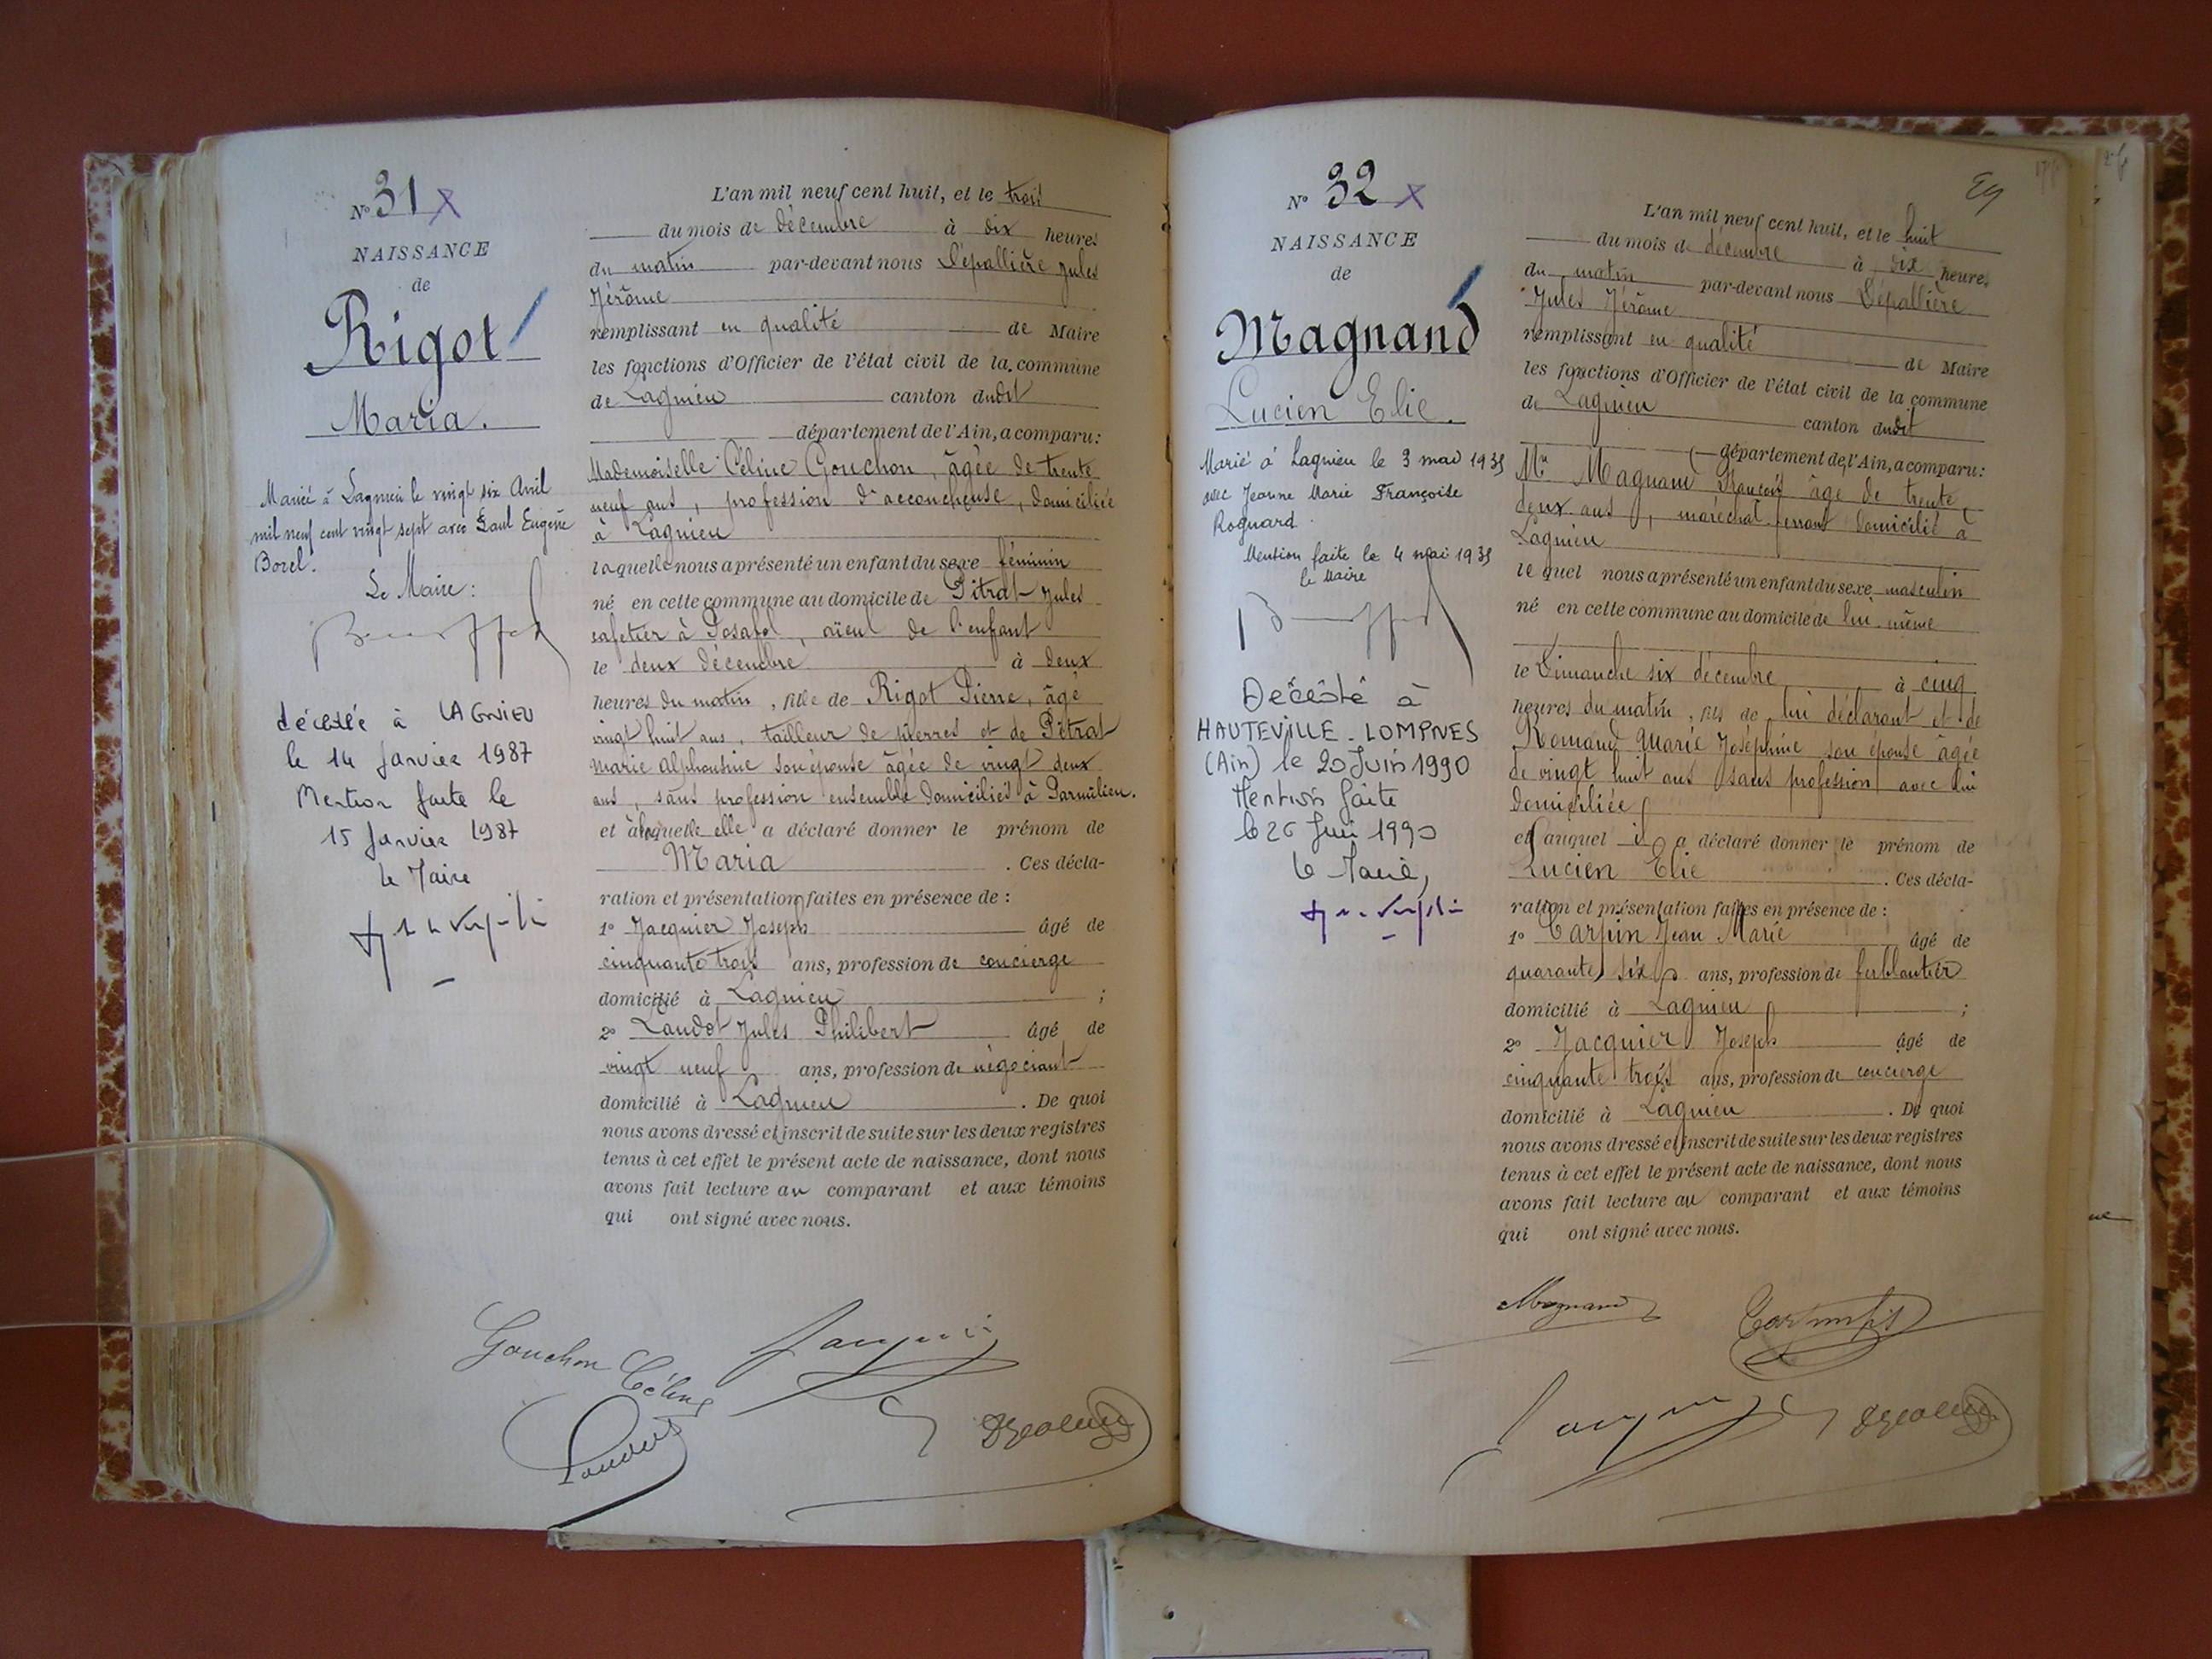 N° 31 X
NAISSANCE
de
Rigot
Maria.
Mariée à Lagnieu le vingt six Avril
mil neuf cent vingt sept avec Paul Eugène
Borel.
Le Maire:
décédée à LAGNIEU
le 14 Janvier 1987
Mention faite le
15 Janvier 1987
le Maire
L'an mil neuf cent huit, et le trois
du mois de décembre à dix heures
du matin par-devant nous Dépallière Jules
Jérôme
remplissant en qualité de Maire
les fonctions d'Officier de l'état civil de la commune
de Lagnieu canton dudit
département de l'Ain, a comparu:
Mademoiselle Céline Gouchon, âgée de trente
neuf ans, profession d'accoucheuse, domiciliée
à Lagnieu
laquelle nous a présenté un enfant du sexe féminin
né en cette commune au domicile de Pitrat Jules
cafetier à Posafol, aïeul de l'enfant
le deux décembre à deux
heures du matin, fille de Rigot Pierre, âgé
vingt huit ans, tailleur de pierres et de Pitrat
Marie Alphonsine son épouse âgée de vingt deux
ans, sans profession ensemble domiciliés à Parmilieu.
et à laquelle elle a déclaré donner le prénom de
Maria. Ces décla-
ration et présentation faites en présence de:
1° Jacquier Joseph âgé de
cinquante trois ans, profession de concierge
domicilié à Lagnieu;
2° Laudot Jules Philibert âgé de
vingt neuf ans, profession de négociant
domicilié à Lagnieu. De quoi
nous avons dressé et inscrit de suite sur les deux registres
tenus à cet effet le présent acte de naissance, dont nous
avons fait lecture au comparant et aux témoins
qui ont signé avec nous.
Gouchon Céline
N° 32 X
NAISSANCE
de
Magnand
Lucien Elie.
Marié à Lagnieu le 3 mai 1935
avec Jeanne Marie Françoise
Roguard.
Mention faite le 4 mai 1935
le Maire
Décédé à
HAUTEVILLE-LOMPNES
(Ain) le 20 Juin 1990
Mention faite
le 26 Juin 1990
le Maire,
L'an mil neuf cent huit, et le huit
du mois de décembre à dix heures
du matin par-devant nous Dépallière
Jules Jérôme
remplissant en qualité de Maire
les fonctions d'Officier de l'état civil de la commune
de Lagnieu canton dudit
département de l'Ain, a comparu:
Mr Magnand François âgé de trente
deux ans, maréchal ferrant domicilié à
Lagnieu
lequel nous a présenté un enfant du sexe masculin
né en cette commune au domicile de lui-même
le Dimanche six décembre à cinq
heures du matin, fils de lui déclarant et de
Romand Marie Joséphine son épouse âgée
de vingt huit ans sans profession avec lui
domiciliée
et auquel il a déclaré donner le prénom de
Lucien Elie. Ces décla-
ration et présentation faites en présence de:
1° Carpin Jean Marie âgé de
quarante six ans, profession de ferblantier
domicilié à Lagnieu;
2° Jacquier Joseph âgé de
cinquante trois ans, profession de concierge
domicilié à Lagnieu. De quoi
nous avons dressé et inscrit de suite sur les deux registres
tenus à cet effet le présent acte de naissance, dont nous
avons fait lecture au comparant et aux témoins
qui ont signé avec nous.
Magnand